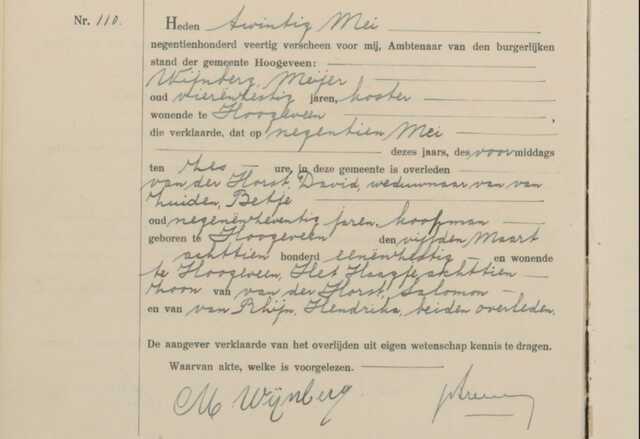 Nr. 110.
Heden twintig Mei
negentienhonderd veertig verscheen voor mij, Ambtenaar van den burgerlijken
stand der gemeente Hoogeveen:
Wijnberg, Meijer
oud vierenzestig jaren, koster
wonende te Hoogeveen
die verklaarde, dat op negentien Mei
dezes jaars, des voormiddags
ten zes ure, in deze gemeente is overleden
van der Horst, David, weduwnaar van van
Zuiden, Betje
oud negenenzeventig jaren, koopman
geboren te Hoogeveen den vijfden Maart
achttien honderd eenenzestig en wonende
te Hoogeveen, Het Haagje achttien
zoon van van der Horst, Salomon
en van van Rhijn, Hendrika, beiden overleden.
De aangever verklaarde van het overlijden uit eigen wetenschap kennis te dragen.
Waarvan akte, welke is voorgelezen.
M Wijnberg.